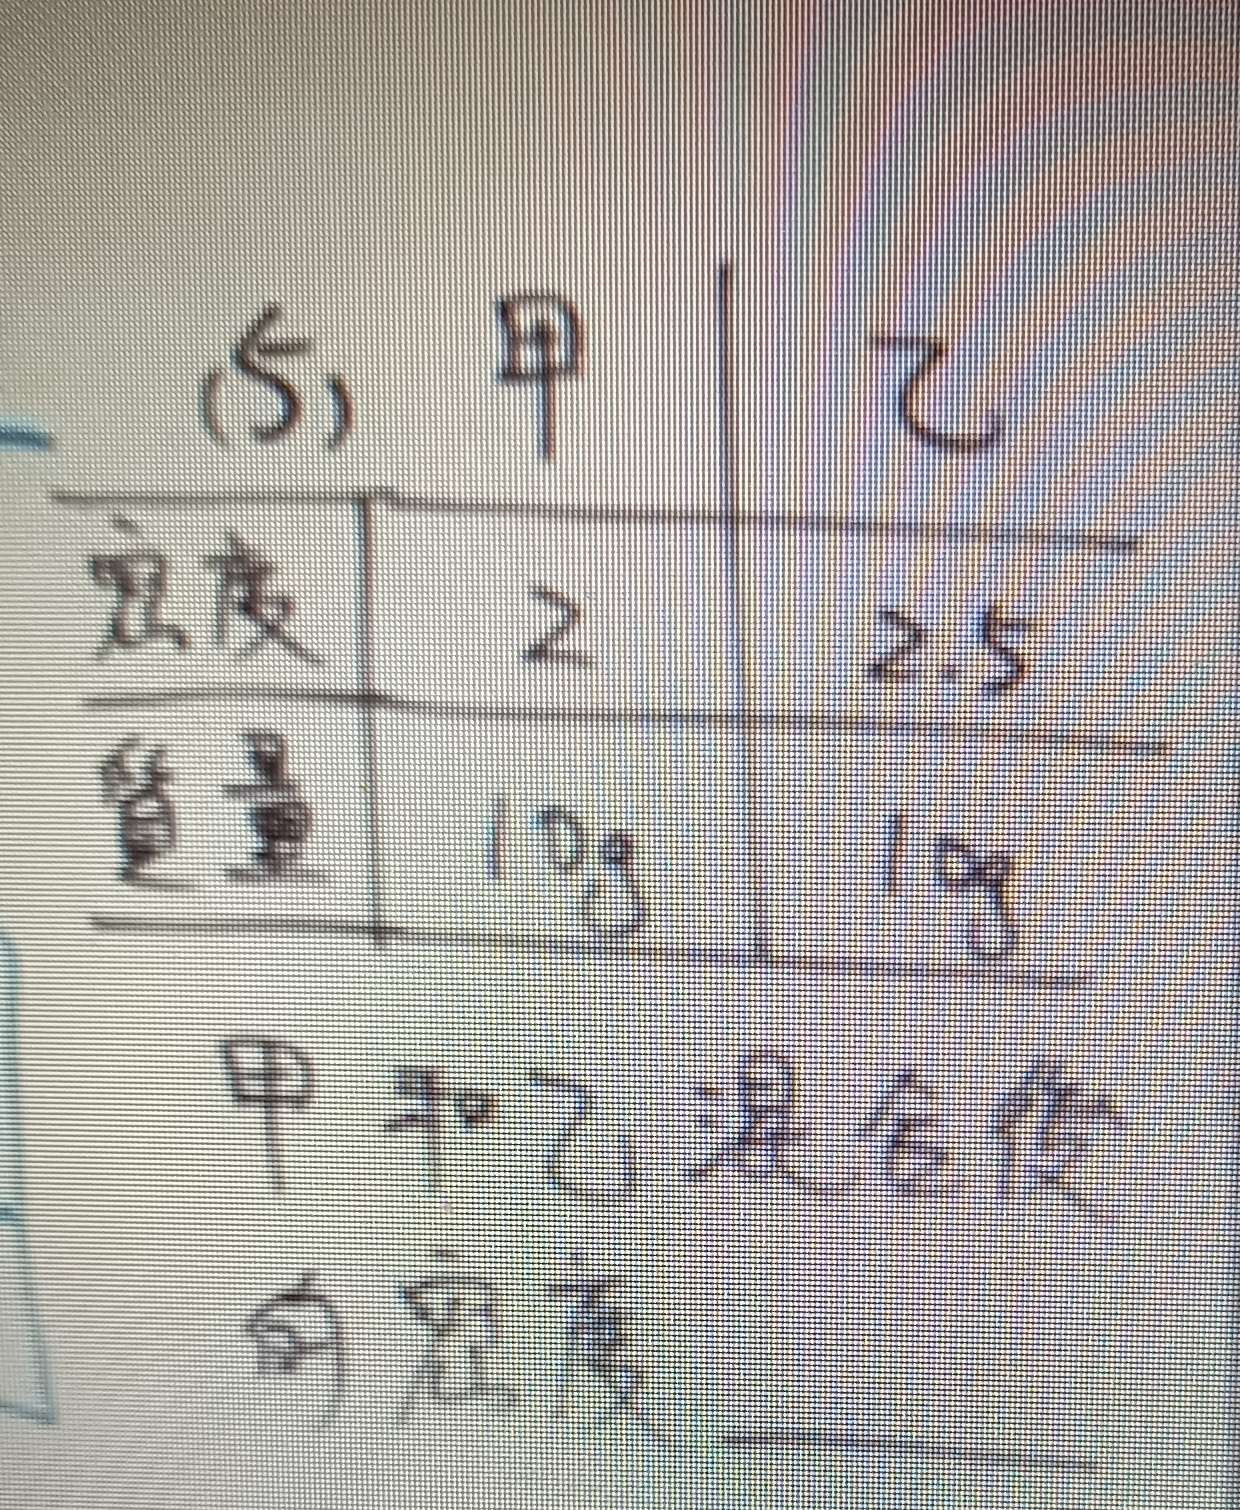 (5) 甲 乙
密度 2 2.5
質量 10g 10g
甲和乙混合後
的密度